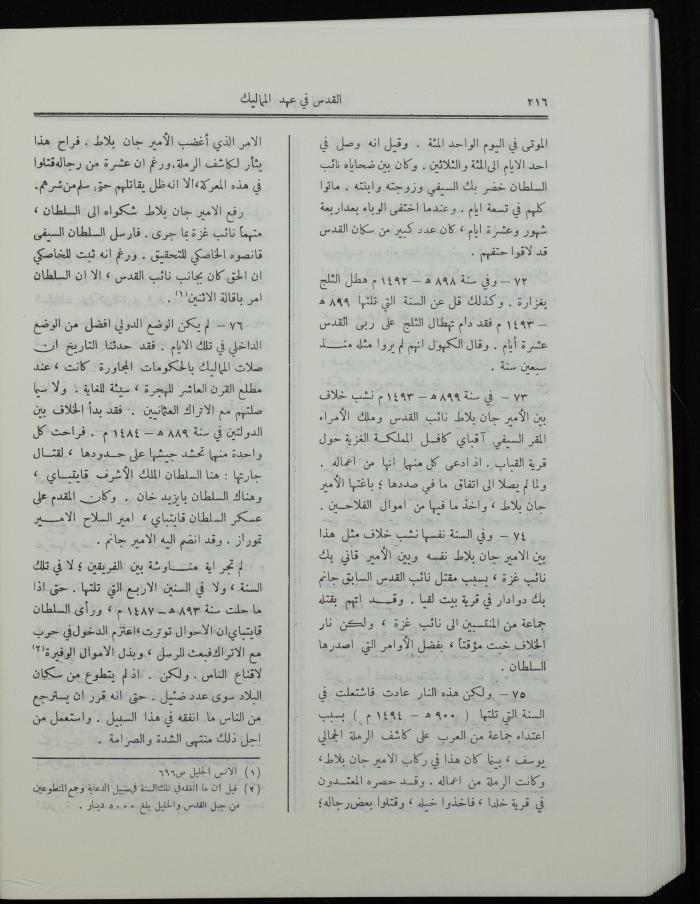 ٢١٦
القدس في عهد المماليك
الموتى في اليوم الواحد المئة . وقيل انه وصل في
احد الايام الى المئة والثلاثين . وكان بين ضحاياه نائب
السلطان خضر بك السيفي وزوجته وابنته . ماتوا
كلهم في تسعة ايام . وعندما اختفى الوباء بعد اربعة
شهور وعشرة ايام ، كان عدد كبير من سكان القدس
قد لاقوا حتفهم .
٧٢ – وفي سنة ٨٩٨ هـ – ١٤٩٢ م هطل الثلج
بغزارة . وكذلك قل عن السنة التي تلتها ٨٩٩ هـ
– ١٤٩٣ م فقد دام تهطال الثلج على ربى القدس
عشرة أيام . وقال الكهول انهم لم يروا مثله منــذ
سبعين سنة .
٧٣ – في سنة ٨٩٩ هـ – ١٤٩٣ م نشب خلاف
بين الأمير جان بلاط نائب القدس وملك الأمراء
المقر السيفي آقباي كافــل المملكــة الغزية حول
قرية القباب . اذ ادعى كل منهما أنها من اعماله .
ولما لم يصلا الى اتفاق ما في صددها ؛ باغتها الأمير
جان بلاط ، واخذ ما فيها من اموال الفلاحــين .
٧٤ – وفي السنة نفسها نشب خلاف مثل هذا
بين الامير جان بلاط نفسه وبين الأمير قاني بك
نائب غزة ، بسبب مقتل نائب القدس السابق جانم
بك دوادار في قرية بيت لقيا . وقــد اتهم بقتله
جماعة من المنتسبين الى نائب غزة ، ولكن نار
الخلاف خبت مؤقتاً ، بفضل الأوامر التي اصدرها
السلطان .
٧٥ – ولكن هذه النار عادت فاشتعلت في
السنة التي تلتها ( ٩٠٠ هـ – ١٤٩٤ م ) بسبب
اعتداء جماعة من العرب على كاشف الرملة الجمالي
يوسف ، بينما كان هذا في ركاب الامير جان بلاط،
وكانت الرملة من اعماله . وقــد حصره المعتــدون
في قرية خلدا ، فاخذوا خيله ، وقتلوا بعض رجاله؛
الامر الذي أغضب الأمير جان بلاط . فراح هذا
يثأر لكاشف الرملة.ورغم ان عشرة من رجاله قتلوا
في هذه المعركة،الا انه ظل يقاتلهم حتى سلم من شرهم.
رفع الامير جان بلاط شكواه الى السلطان ،
متهماً نائب غزة بما جرى . فارسل السلطان السيفى
قانصوه الخاصكي للتحقيق . ورغم انه ثبت للخاصكي
ان الحق كان بجانب نائب القدس ، الا ان السلطان
امر باقالة الاثنين (١).
٧٦ – لم يكن الوضع الدولي افضل من الوضع
الداخلي في تلك الايام . فقد حدثنا التاريخ ان
صلات المماليك بالحكومات المجاورة كانت ، عند
مطلع القرن العاشر للهجرة ، سيئة للغاية . ولا سيما
صلتهم مع الاتراك العثمانيين . فقد بدأ الخلاف بين
الدولتين في سنة ٨٨٩ هـ – ١٤٨٤ م . فراحت كل
واحدة منهما تحشد جيشها على حــدودها ، لقتــال
جارتها : هنا السلطان الملك الأشرف قايتبــاي ،
وهناك السلطان بايزيد خان . وكان المقدم على
عسكر السلطان قايتباي ، امير السلاح الامــير
تمراز . وقد انضم اليه الامير جانم .
لم تجر اية منــاوشة بين الفريقين ؛ لا في تلك
السنة ، ولا في السنين الاربع التي تلتها . حتى اذا
ما حلت سنة ٨٩٣ هـ – ١٤٨٧ م ، ورأى السلطان
قايتباي ان الاحوال توترت،اعتزم الدخول في حرب
مع الاتراك فبعث الرسل ، وبذل الاموال الوفيرة (٢)
لاقناع الناس . ولكن . اذ لم يتطوع من سكان
البلاد سوى عدد ضئيل . حتى انه قرر ان يسترجع
من الناس ما انفقه في هذا السبيل . واستعمل من
اجل ذلك منتهى الشدة والصرامة .
(١) الانس الجليل ص ٦٩٦
(٢) قيل ان ما انفقه في تلك السنة في سبيل الدعاية وجمع المتطوعين
من جبل القدس والخليل بلغ ٥٠٠٠ دينار .